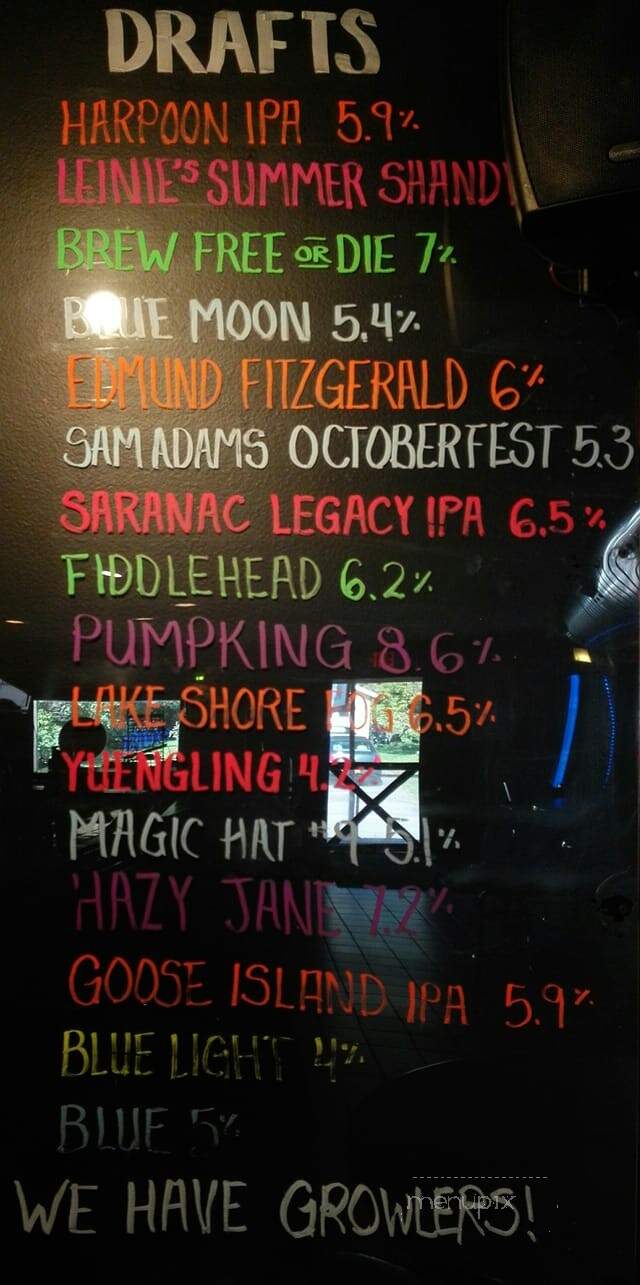 DRAFTS
HARPOON IPA 5.9%
LEINIE'S SUMMER SHANDY
BREW FREE OR DIE 7%
BLUE MOON 5.4%
EDMUND FITZGERALD 6%
SAM ADAMS OCTOBERFEST 5.3
SARANAC LEGACY IPA 6.5%
FIDDLEHEAD 6.2%
PUMPKING 8.6%
LAKE SHORE FOG 6.5%
YUENGLING 4.2%
MAGIC HAT #9 5.1%
HAZY JANE 7.2%
GOOSE ISLAND IPA 5.9%
BLUE LIGHT 4%
BLUE 5%
WE HAVE GROWLERS!
menupix